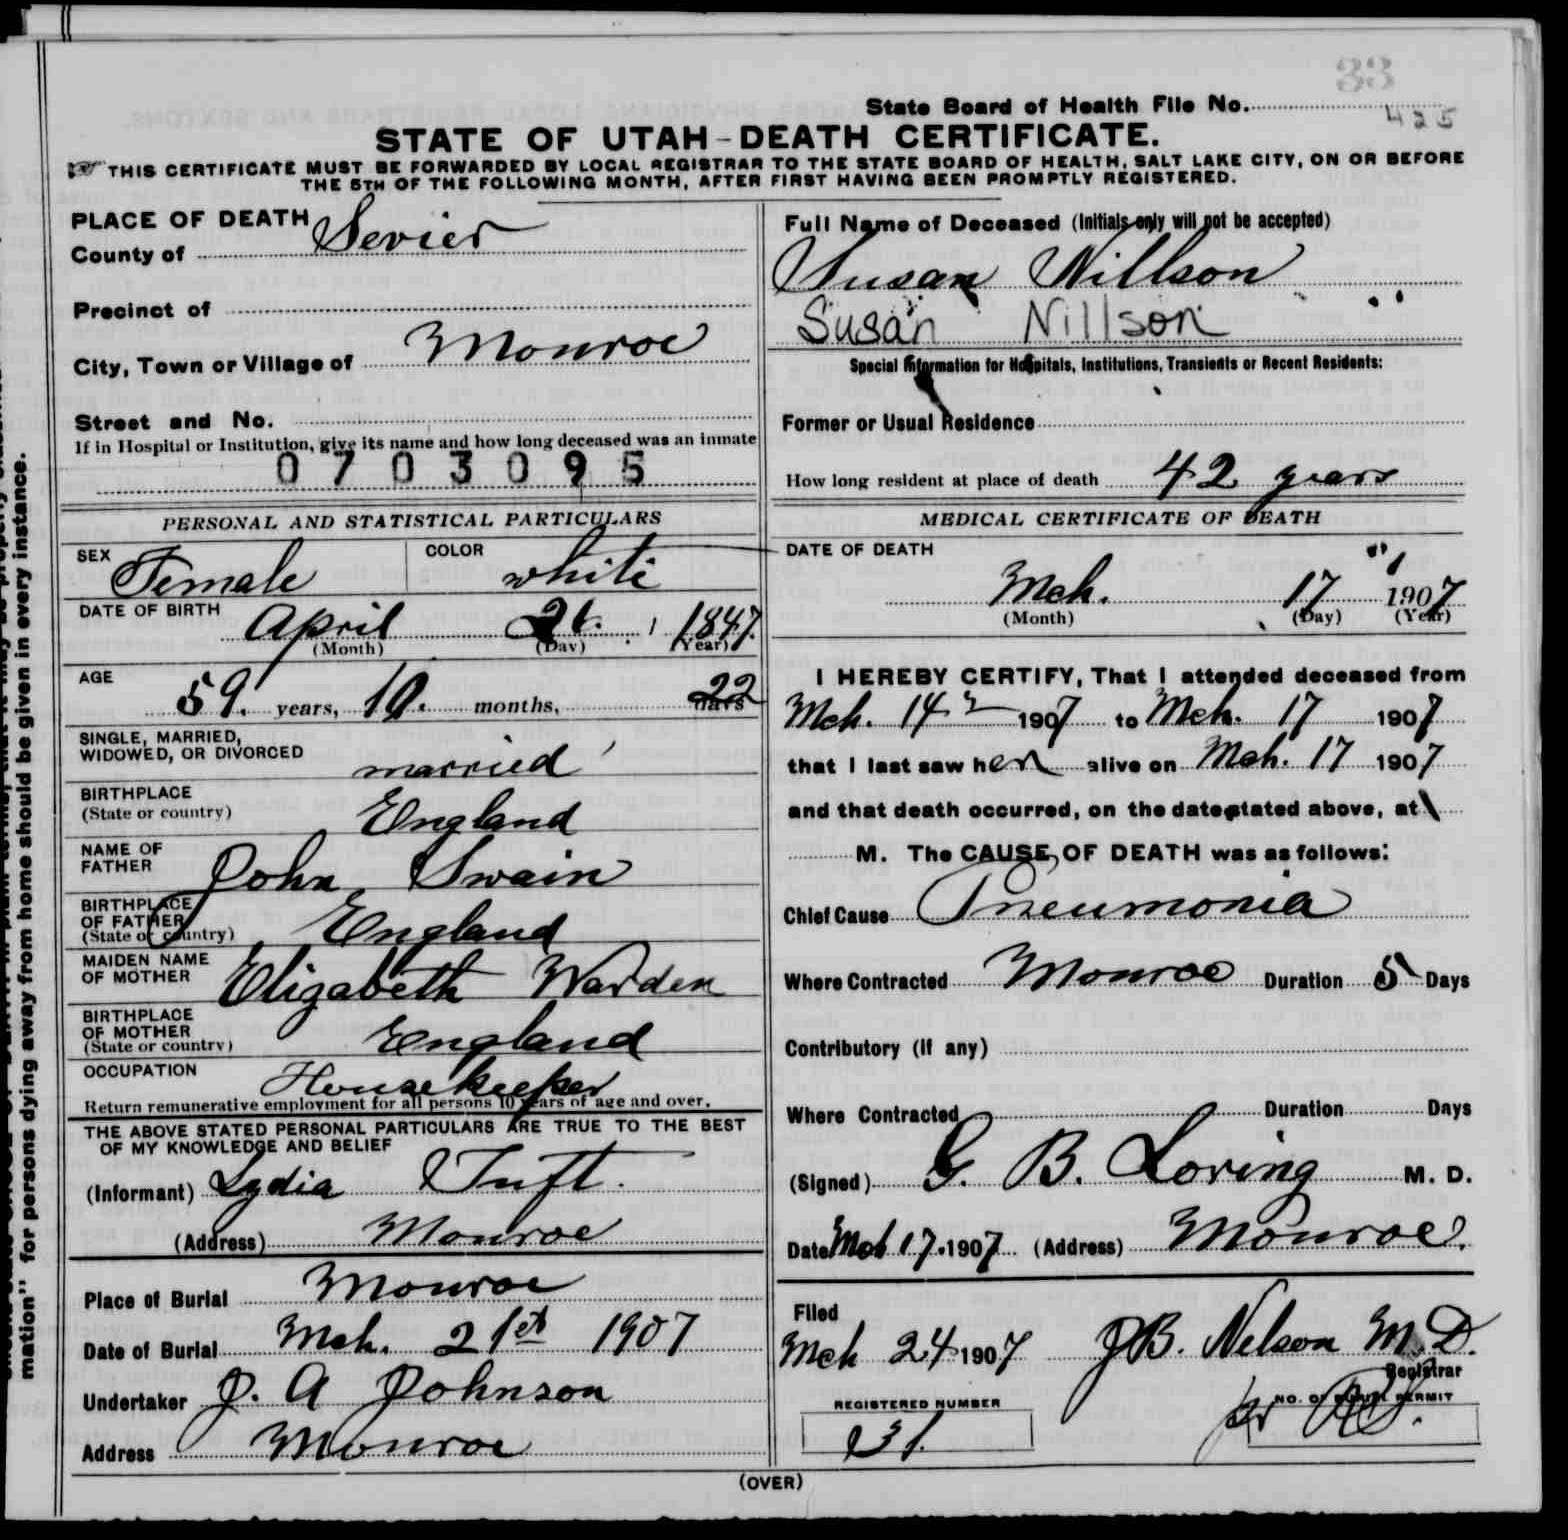 33
State Board of Health File No. 425
STATE OF UTAH-DEATH CERTIFICATE.
THIS CERTIFICATE MUST BE FORWARDED BY LOCAL REGISTRAR TO THE STATE BOARD OF HEALTH, SALT LAKE CITY, ON OR BEFORE
THE 5TH OF THE FOLLOWING MONTH, AFTER FIRST HAVING BEEN PROMPTLY REGISTERED.
PLACE OF DEATH
County of Sevier
Precinct of
City, Town or Village of Monroe
Street and No.
If in Hospital or Institution, give its name and how long deceased was an inmate
0703095
PERSONAL AND STATISTICAL PARTICULARS
SEX Female COLOR white
DATE OF BIRTH April 26. 1847.
(Month) (Day) (Year)
AGE 59. years, 10. months, 22 days
SINGLE, MARRIED,
WIDOWED, OR DIVORCED married
BIRTHPLACE
(State or country) England
NAME OF
FATHER John Swain
BIRTHPLACE
OF FATHER
(State or country) England
MAIDEN NAME
OF MOTHER Elizabeth Warden
BIRTHPLACE
OF MOTHER
(State or country) England
OCCUPATION Housekeeper
Return remunerative employment for all persons 10 years of age and over.
THE ABOVE STATED PERSONAL PARTICULARS ARE TRUE TO THE BEST
OF MY KNOWLEDGE AND BELIEF
(Informant) Lydia Tuft.
(Address) Monroe
Place of Burial Monroe
Date of Burial Mch. 21st 1907
Undertaker J. A Johnson
Address Monroe
Full Name of Deceased (Initials only will not be accepted)
Susan Nillson
Susan Nillson
Special Information for Hospitals, Institutions, Transients or Recent Residents:
Former or Usual Residence
How long resident at place of death 42 years
MEDICAL CERTIFICATE OF DEATH
DATE OF DEATH
Mch. 17 1907
(Month) (Day) (Year)
I HEREBY CERTIFY, That I attended deceased from
Mch. 14 1907 to Mch. 17 1907
that I last saw her alive on Mch. 17 1907
and that death occurred, on the date stated above, at
M. The CAUSE OF DEATH was as follows:
Chief Cause Pneumonia
Where Contracted Monroe Duration 5 Days
Contributory (if any)
Where Contracted Duration Days
(Signed) G. B. Loring M. D.
Date Mch 17. 1907 (Address) Monroe.
Filed
Mch 24 1907 J B. Nelson M.D.
Registrar
REGISTERED NUMBER NO. OF BURIAL PERMIT
31. pr
(OVER)
mation" for persons dying away from home should be given in every instance.